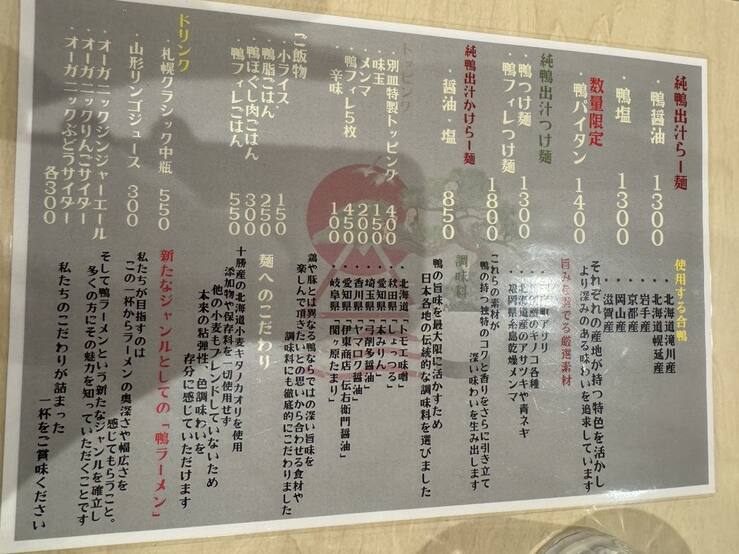 純鴨出汁らー麺
・鴨醤油 1300
・鴨塩 1300
数量限定
・鴨パイタン 1400
純鴨出汁つけ麺
・鴨つけ麺 1300
・鴨フィレつけ麺 1800
純鴨出汁かけらー麺
・醤油・塩 850
トッピング
・別皿特製トッピング 400
・味玉 150
・メンマ 200
・鴨フィレ5枚 450
・辛味 100
ご飯物
・小ライス 150
・鴨脂ごはん 250
・鴨ほぐし肉ごはん 300
・鴨フィレごはん 550
ドリンク
・札幌クラシック中瓶 550
・山形リンゴジュース 300
・オーガニックジンジャーエール
・オーガニックりんごサイダー
・オーガニックぶどうサイダー
各300
使用する合鴨
・北海道滝川産
・北海道幌延産
・岩手産
・京都産
・岡山産
・滋賀産
それぞれの産地が持つ特色を活かし
より深みのある味わいを追求しています
旨みを奏でる厳選素材
アサリ
のキノコ各種
・北海道産のアサツキや青ネギ
・福岡県糸島乾燥メンマ
これらの素材が
鴨の持つ独特のコクと香りをさらに引き立て
深い味わいを生み出します
調味料
鴨の旨味を最大限に活かすため
日本各地の伝統的な調味料を選びました
・北海道「トモエ味噌」
・秋田県「しょっつる」
・愛知県「三河本みりん」
・埼玉県「弓削多醤油」
・香川県「ヤマロク醤油」
・愛知県「伊東商店 伝右衛門醤油」
・岐阜県「関ヶ原たまり」
鶏や豚とは異なる鴨ならではの深い旨味を
楽しんで頂きたいとの思いから合わせる食材や
調味料にも徹底的にこだわりました
麺へのこだわり
十勝産の北海道小麦キタノカオリを使用
添加物や保存料を一切使用せず
他の小麦もブレンドしていないため
本来の粘弾性、色調味わいを
存分に感じていただけます
新たなジャンルとしての「鴨ラーメン」
私たちが目指すのは
この一杯からラーメンの奥深さや幅広さを
感じてもらうこと。
そして鴨ラーメンという新たなジャンルを確立し
多くの方にその魅力を知っていただくことです
私たちのこだわりが詰まった
一杯をご賞味ください